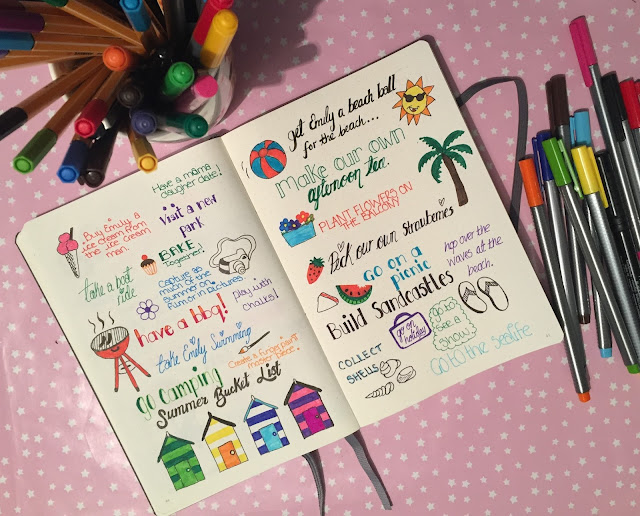 Have a mama
daugher date!
Buy Emily a
ice cream from
the ice cream
man.
Visit a new
park
BAKE
Together!
Take a
ride
Capture as
much of the
summer on
film or in pictures.
play with
chalks!
have a bbq!
take Emily Swimming
Create a finger paint
master piece.
go camping
Summer Bucket List
get Emily a beach ball
for the beach...
make our own
afternoon tea.
PLANT FLOWERS ON
THE BALCONY
Pick our own strawberries
GO ON A
picnic
hop over the
waves at the
beach.
Build Sandcastles
go on
holiday
go to
see a
show
COLLECT
SHELLS
GO TO the Sealife